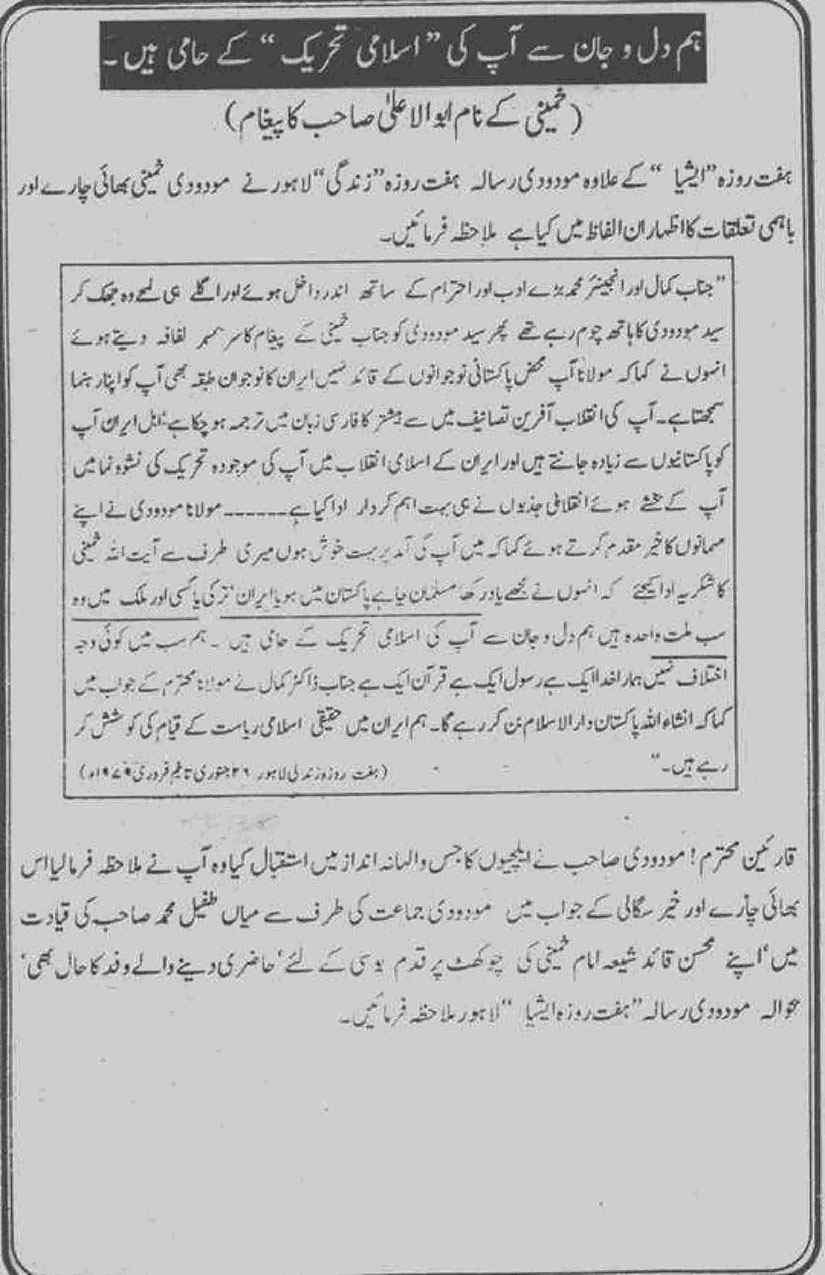 ہم دل و جان سے آپ کی "اسلامی تحریک" کے حامی ہیں۔
(خمینی کے نام ابوالاعلیٰ صاحب کا پیغام)
ہفت روزہ "ایشیا" کے علاوہ مودودی رسالہ ہفت روزہ "زندگی" لاہور نے مودودی خمینی بھائی چارے اور
باہمی تعلقات کا اظہار ان الفاظ میں کیا ہے ملاحظہ فرمائیں۔
"جناب کمال اور انجینئر محمد بڑے ادب اور احترام کے ساتھ اندر داخل ہوئے اور اگلے ہی لمحے وہ جھک کر
سید مودودی کا ہاتھ چوم رہے تھے پھر سید مودودی کو جناب خمینی کے پیغام کا سر بمہر لفافہ دیتے ہوئے
انہوں نے کہا کہ مولانا آپ محض پاکستانی نوجوانوں کے قائد نہیں ایران کا نوجوان طبقہ بھی آپ کو اپنا رہنما
سمجھتا ہے۔ آپ کی انقلاب آفرین تصانیف میں سے بیشتر کا فارسی زبان میں ترجمہ ہو چکا ہے' اہل ایران آپ
کو پاکستانیوں سے زیادہ جانتے ہیں اور ایران کے اسلامی انقلاب میں آپ کی موجودہ تحریک کی نشوونما میں
آپ کے بخشے ہوئے انقلابی جذبوں نے ہی بہت اہم کردار ادا کیا ہے ------ مولانا مودودی نے اپنے
مہمانوں کا خیر مقدم کرتے ہوئے کہا کہ میں آپ کی آمد پر بہت خوش ہوں میری طرف سے آیت اللہ خمینی
کا شکریہ ادا کیجئے کہ انہوں نے مجھے یاد رکھا مسلمان چاہے پاکستان میں ہو یا ایران' ترکی یا کسی اور ملک میں وہ
سب ملت واحدہ ہیں ہم دل و جان سے آپ کی اسلامی تحریک کے حامی ہیں۔ ہم سب میں کوئی وجہ
اختلاف نہیں ہمارا خدا ایک ہے رسول ایک ہے قرآن ایک ہے جناب ڈاکٹر کمال نے مولانا محترم کے جواب میں
کہا کہ انشاء اللہ پاکستان دارالاسلام بن کر رہے گا۔ ہم ایران میں حقیقی اسلامی ریاست کے قیام کی کوشش کر
رہے ہیں۔" (ہفت روزہ زندگی لاہور ۲۶ جنوری تا یکم فروری ۱۹۷۹ء)
قارئین محترم! مودودی صاحب نے ایلچیوں کا جس والہانہ انداز میں استقبال کیا وہ آپ نے ملاحظہ فرما لیا اس
بھائی چارے اور خیر سگالی کے جواب میں مودودی جماعت کی طرف سے میاں طفیل محمد صاحب کی قیادت
میں' اپنے محسن قائد شیعہ امام خمینی کی چوکھٹ پر قدم بوسی کے لئے' حاضری دینے والے وفد کا حال بھی'
بحوالہ مودودی رسالہ "ہفت روزہ ایشیا" لاہور ملاحظہ فرمائیں۔